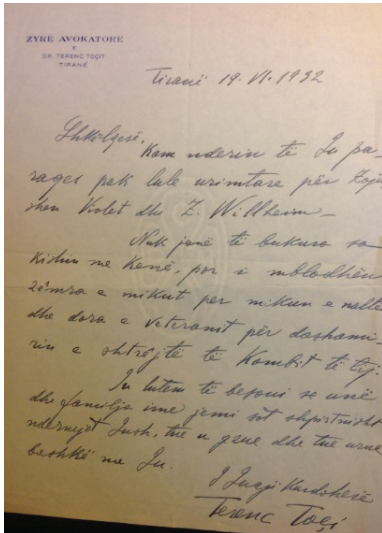 ZYRË AVOKATORE
E
DR. TERENC TOÇIT
TIRANË
Tiranë 19. VI. 1932
Shkëlqesë,
Kam nderin të Ju pa-
raqes pak lule urimtare për Zojë
shen Violet dhe Z. Willhelm -
Nuk janë të bukura sa
kishin me kenë, por i mblodhën
zëmra e mikut për mikun e naltë
dhe dora e veteranit për dashami-
rin e shtrêjtë të Kombit të tij.
Ju lutem të besoni se unë
dhe familja ime jemi sot shpirtnisht
Jush, tue u dhe tue urue
bashkë me Ju.
I Juaji Kurdoherë
Terenc Toçi